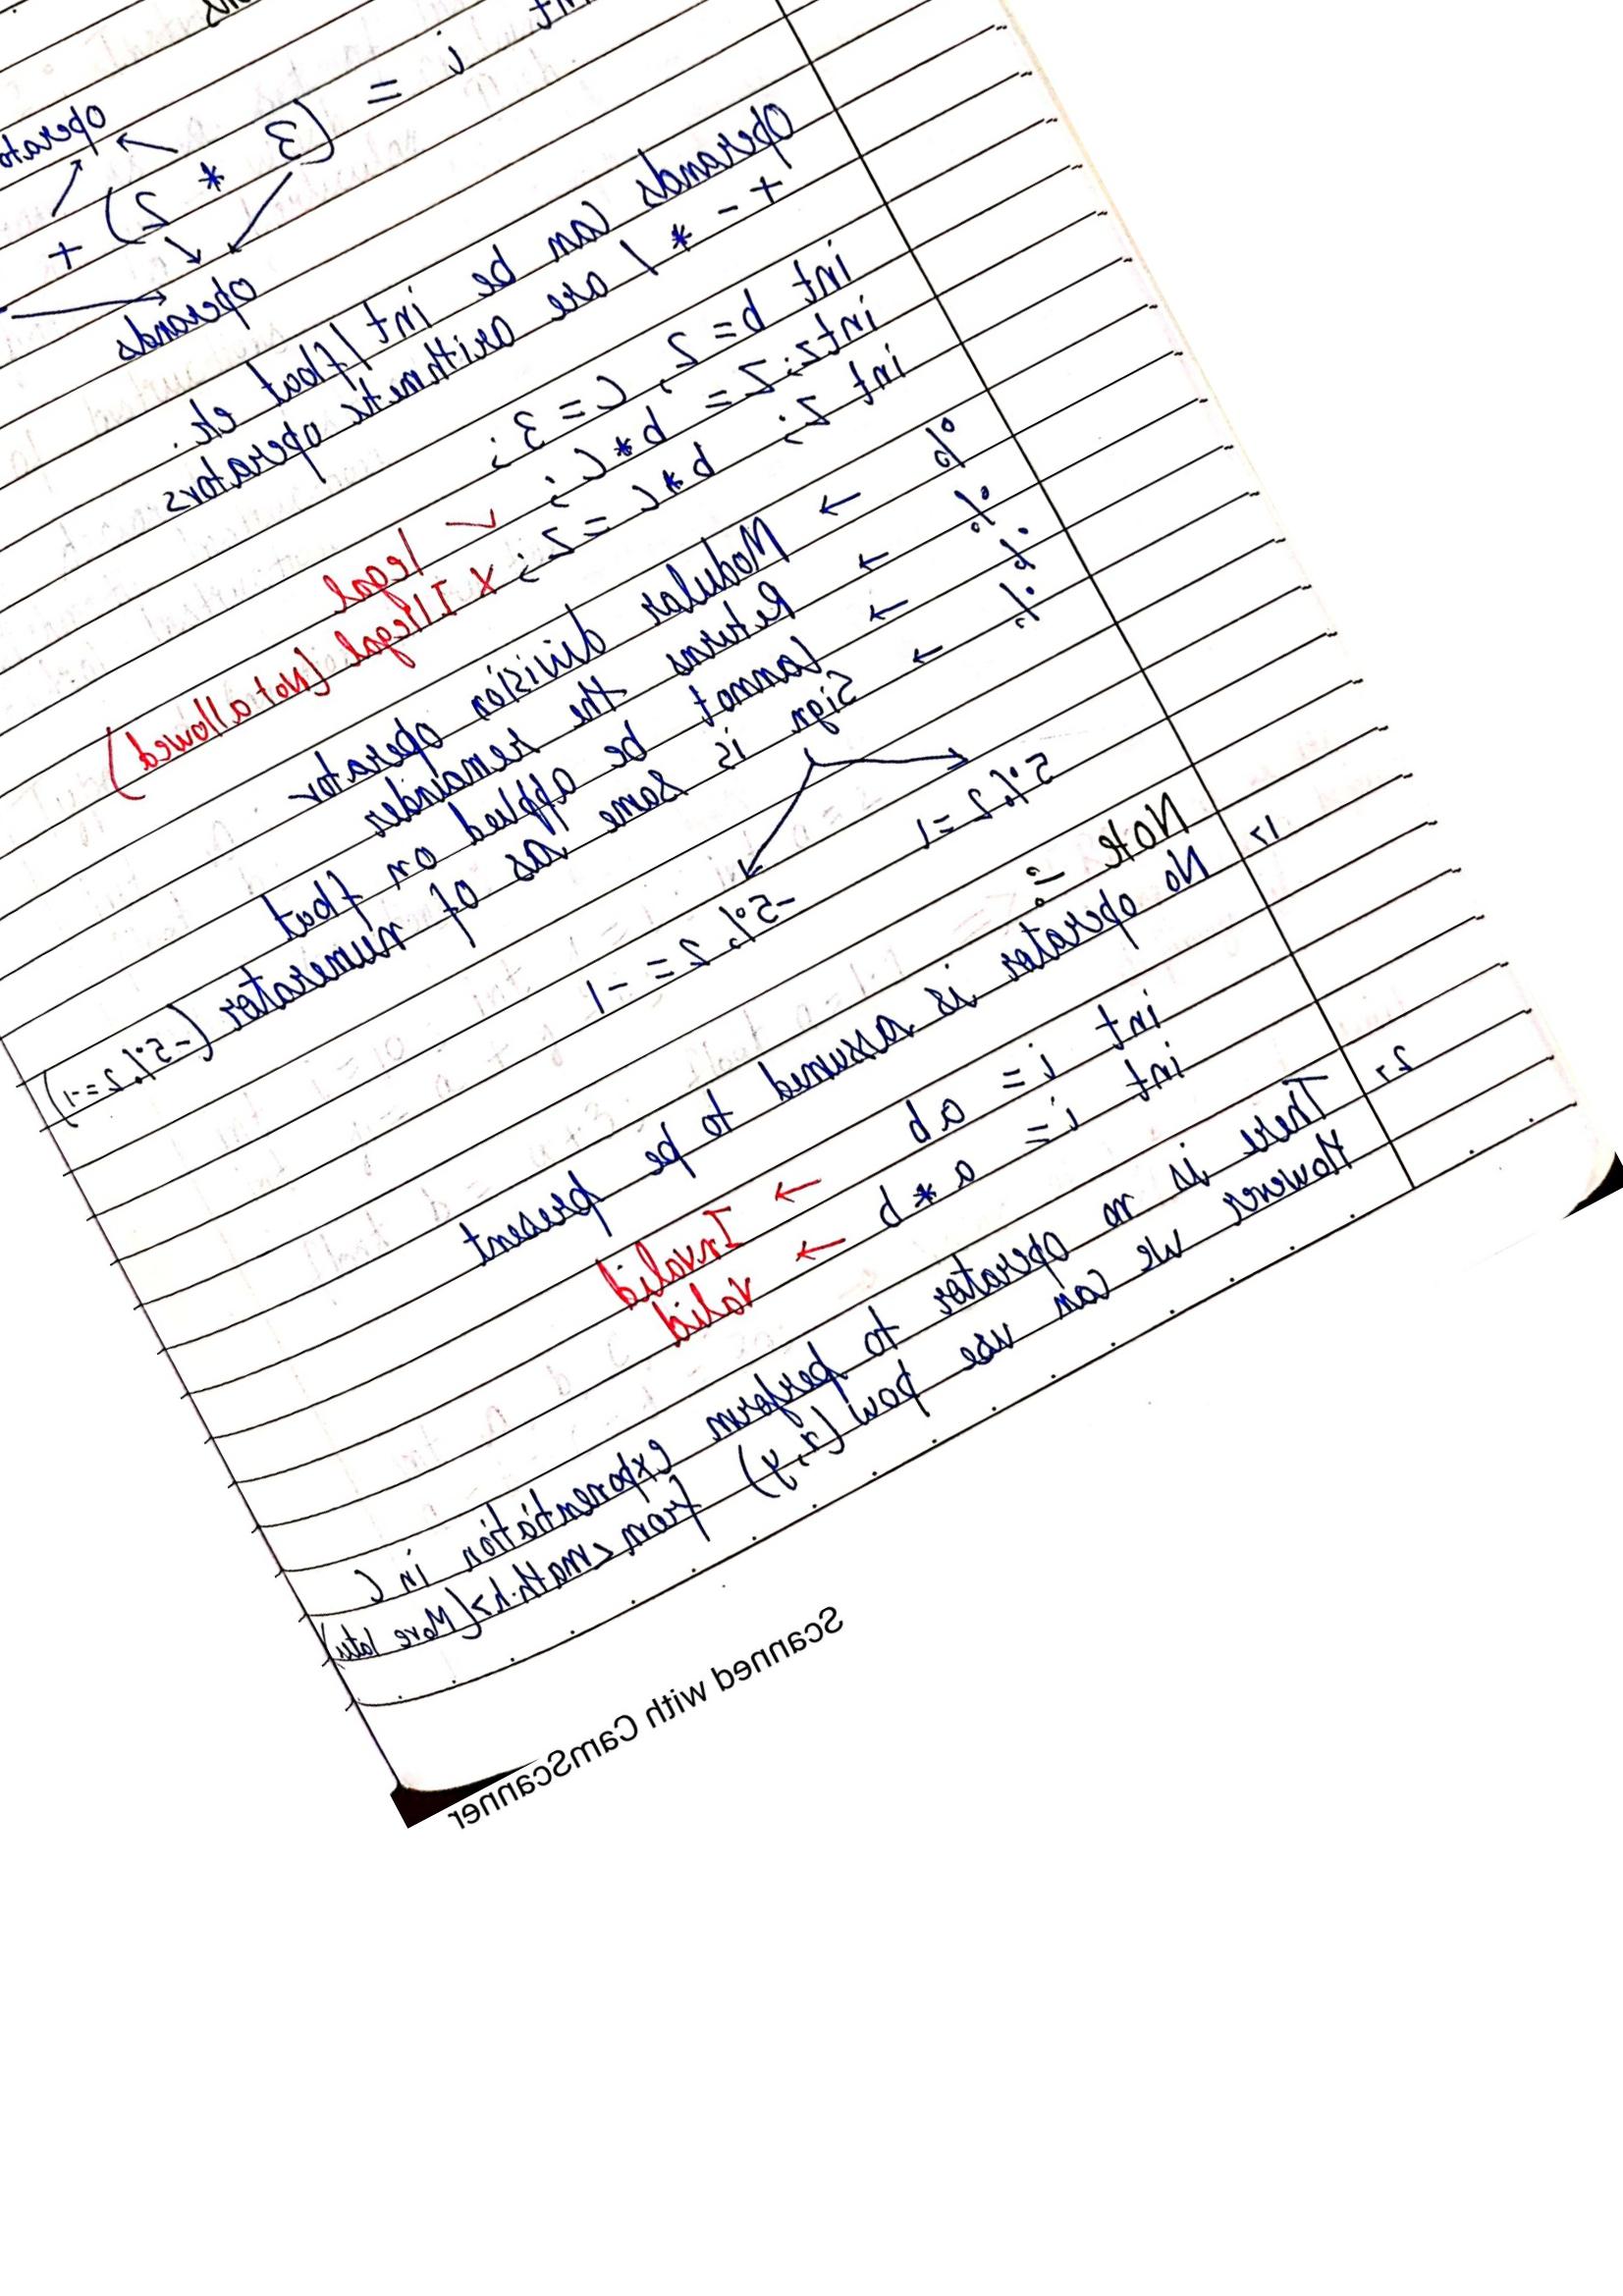 int i = (3 * 2) +
operands
Operands can be int / float etc.
+ - * / are arithmetic operators
int b = 2, c = 3;
int z; z = b*c; ✓ legal
int z; b*c = z; X Illegal (Not allowed)
% → Modular division operator
% → Returns the remainder
% → cannot be applied on float
% → Sign is same as of numerator (-5%2=-1)
5%2=1
-5%2 = -1
Note :-
1> No operator is assumed to be present
int i = ab → Invalid
int i = a * b → Valid
2> There is no operator to perform exponentation in C
However we can use pow(x,y) from <math.h>(More later)
Scanned with CamScanner